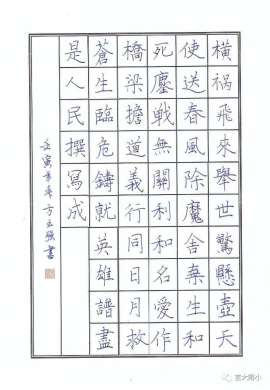 横祸飛來舉世驚懸壺天
使送春風除魔舍棄生和
死鏖戦無關利和名愛作
橋梁擔道義行同日月救
蒼生臨危鑄就英雄譜盡
是人民撰寫成
壬寅年春方強書